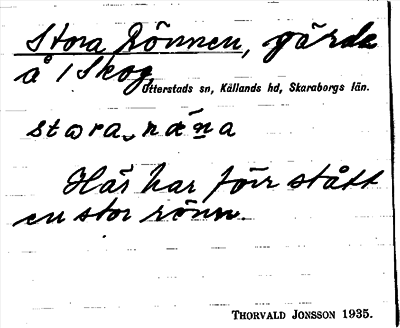 Stora Rönnen, gärde
å 1 Skog,
Otterstads sn, Källands hd, Skaraborgs län.
Här har förr stått
en stor rönn.
THORVALD JONSSON 1935.